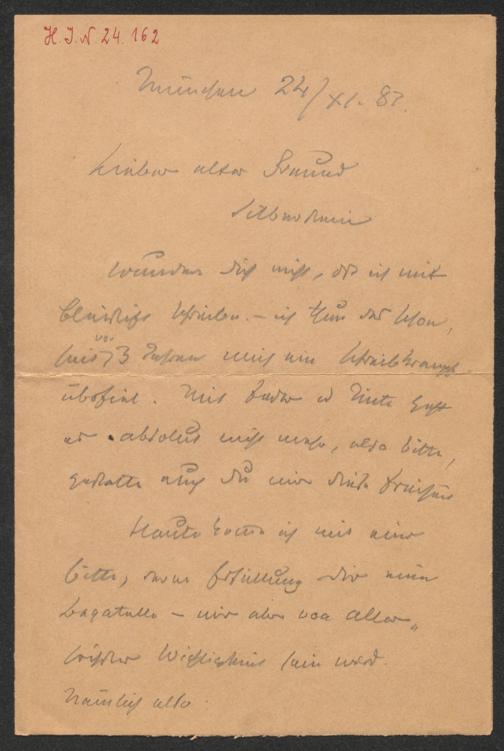 H.I.N. 24.162
München 24/XI. 87.
Lieber alter Freund
Silberstein
Wundre dich nicht, dß ich mit
Bleistift schreibe. – ich thue das schon,
seit vor 3 Jahren mich ein Schreibkrampf
überfiel. Mit Feder u Tinte geht
es absolut nicht mehr, also bitte,
gestatte auch du mir diese Freiheit
Heute komme ich mit einer
Bitte, deren Erfüllung dir eine
Bagatelle – mir aber von aller„
größter Wichtigkeit sein wird.
Nämlich also: